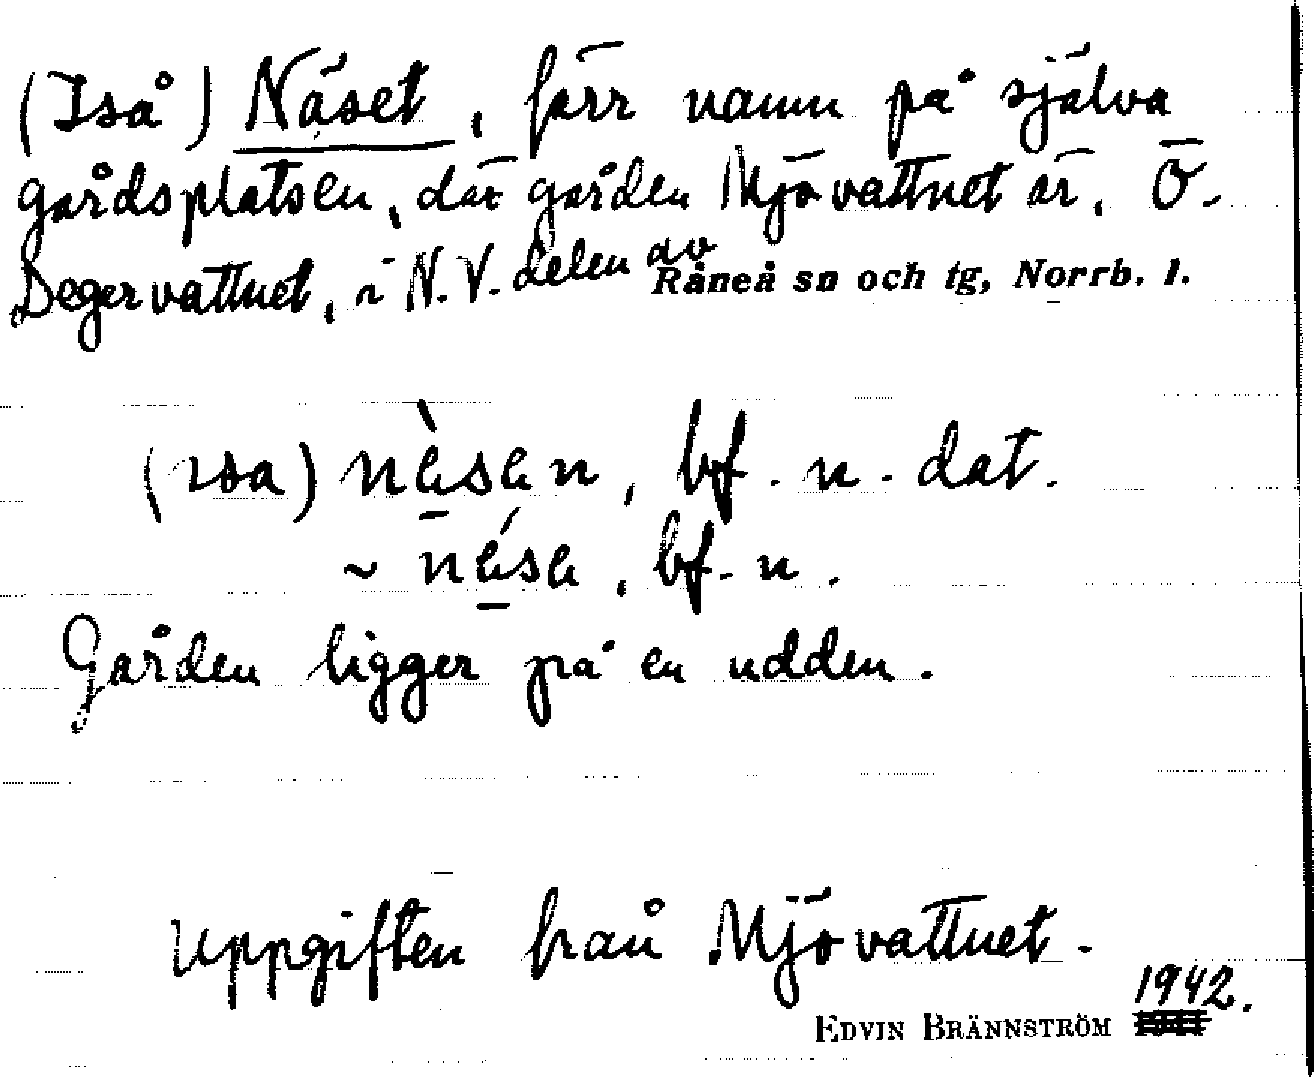 (Iså) Näset, förr namn på själva
gårdsplatsen, där gården Mjövattnet är. Ö.
Degervattnet, i N.V. delen av Råneå sn och tg, Norrb. l.
(ɪsa) nὲsɛn, bf. n. dat.
~ nɛ́sɛ, bf. n.
Gården ligger på en udden.
Uppgiften från Mjövattnet.
1942.
EDVIN BRÄNNSTRÖM